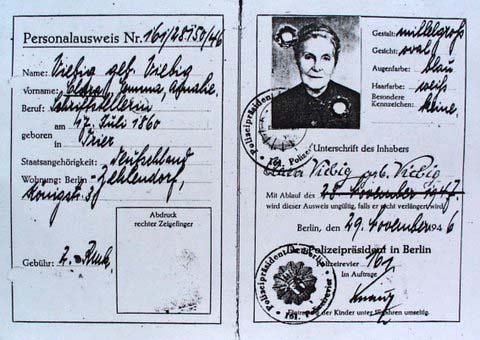 Personalausweis Nr. 161/28150/46
Name: Viebig geb. Viebig
Vorname: Clara, Emma, Amalie.
Beruf: Schriftstellerin
am 17. Juli 1860
geboren
in Trier
Staatsangehörigkeit: Deutschland
Wohnung: Berlin - Zehlendorf,
Königstr. 3
Abdruck
rechter Zeigefinger
Gebühr: 2.- Rmk.
Gestalt: mittelgroß
Gesicht: oval
Augenfarbe: blau
Haarfarbe: weiß
Besondere
Kennzeichen: keine.
Polizeipräsident
161. Polizei
Unterschrift des Inhabers
Clara Viebig geb. Viebig
Mit Ablauf des 28. November 1947
wird dieser Ausweis ungültig, falls er nicht verlängert wird
Berlin, den 29. November 1946
Der Polizeipräsident in Berlin
Polizeirevier 161
Im Auftrage
Polizeipräsident in Berlin
161.
Eintragung der Kinder unter Jahren umseitig.